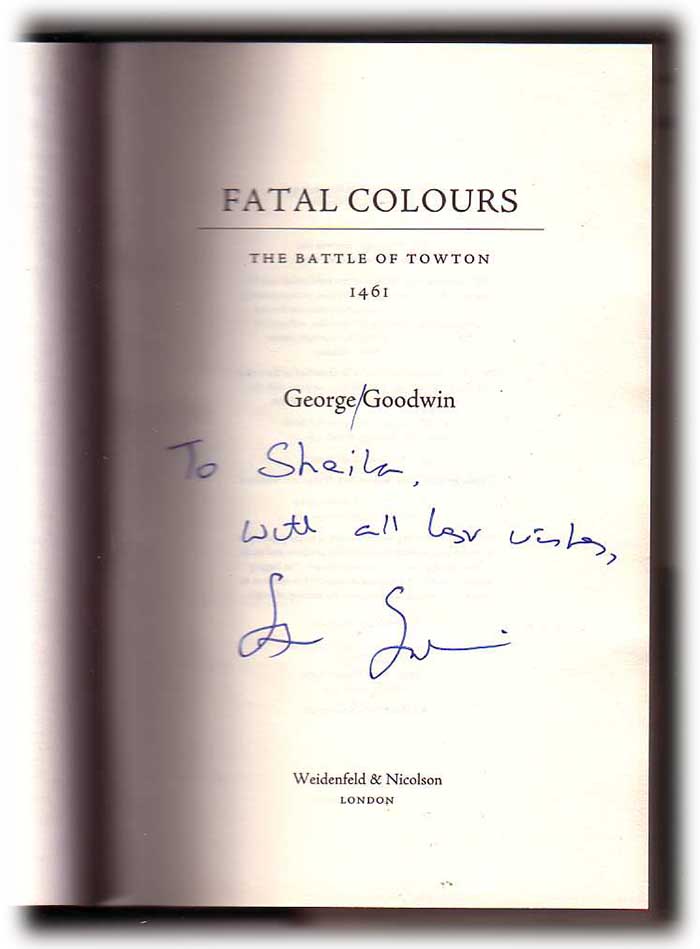 FATAL COLOURS
THE BATTLE OF TOWTON
1461
George Goodwin
To Sheila,
with all best wishes,
Weidenfeld & Nicolson
LONDON